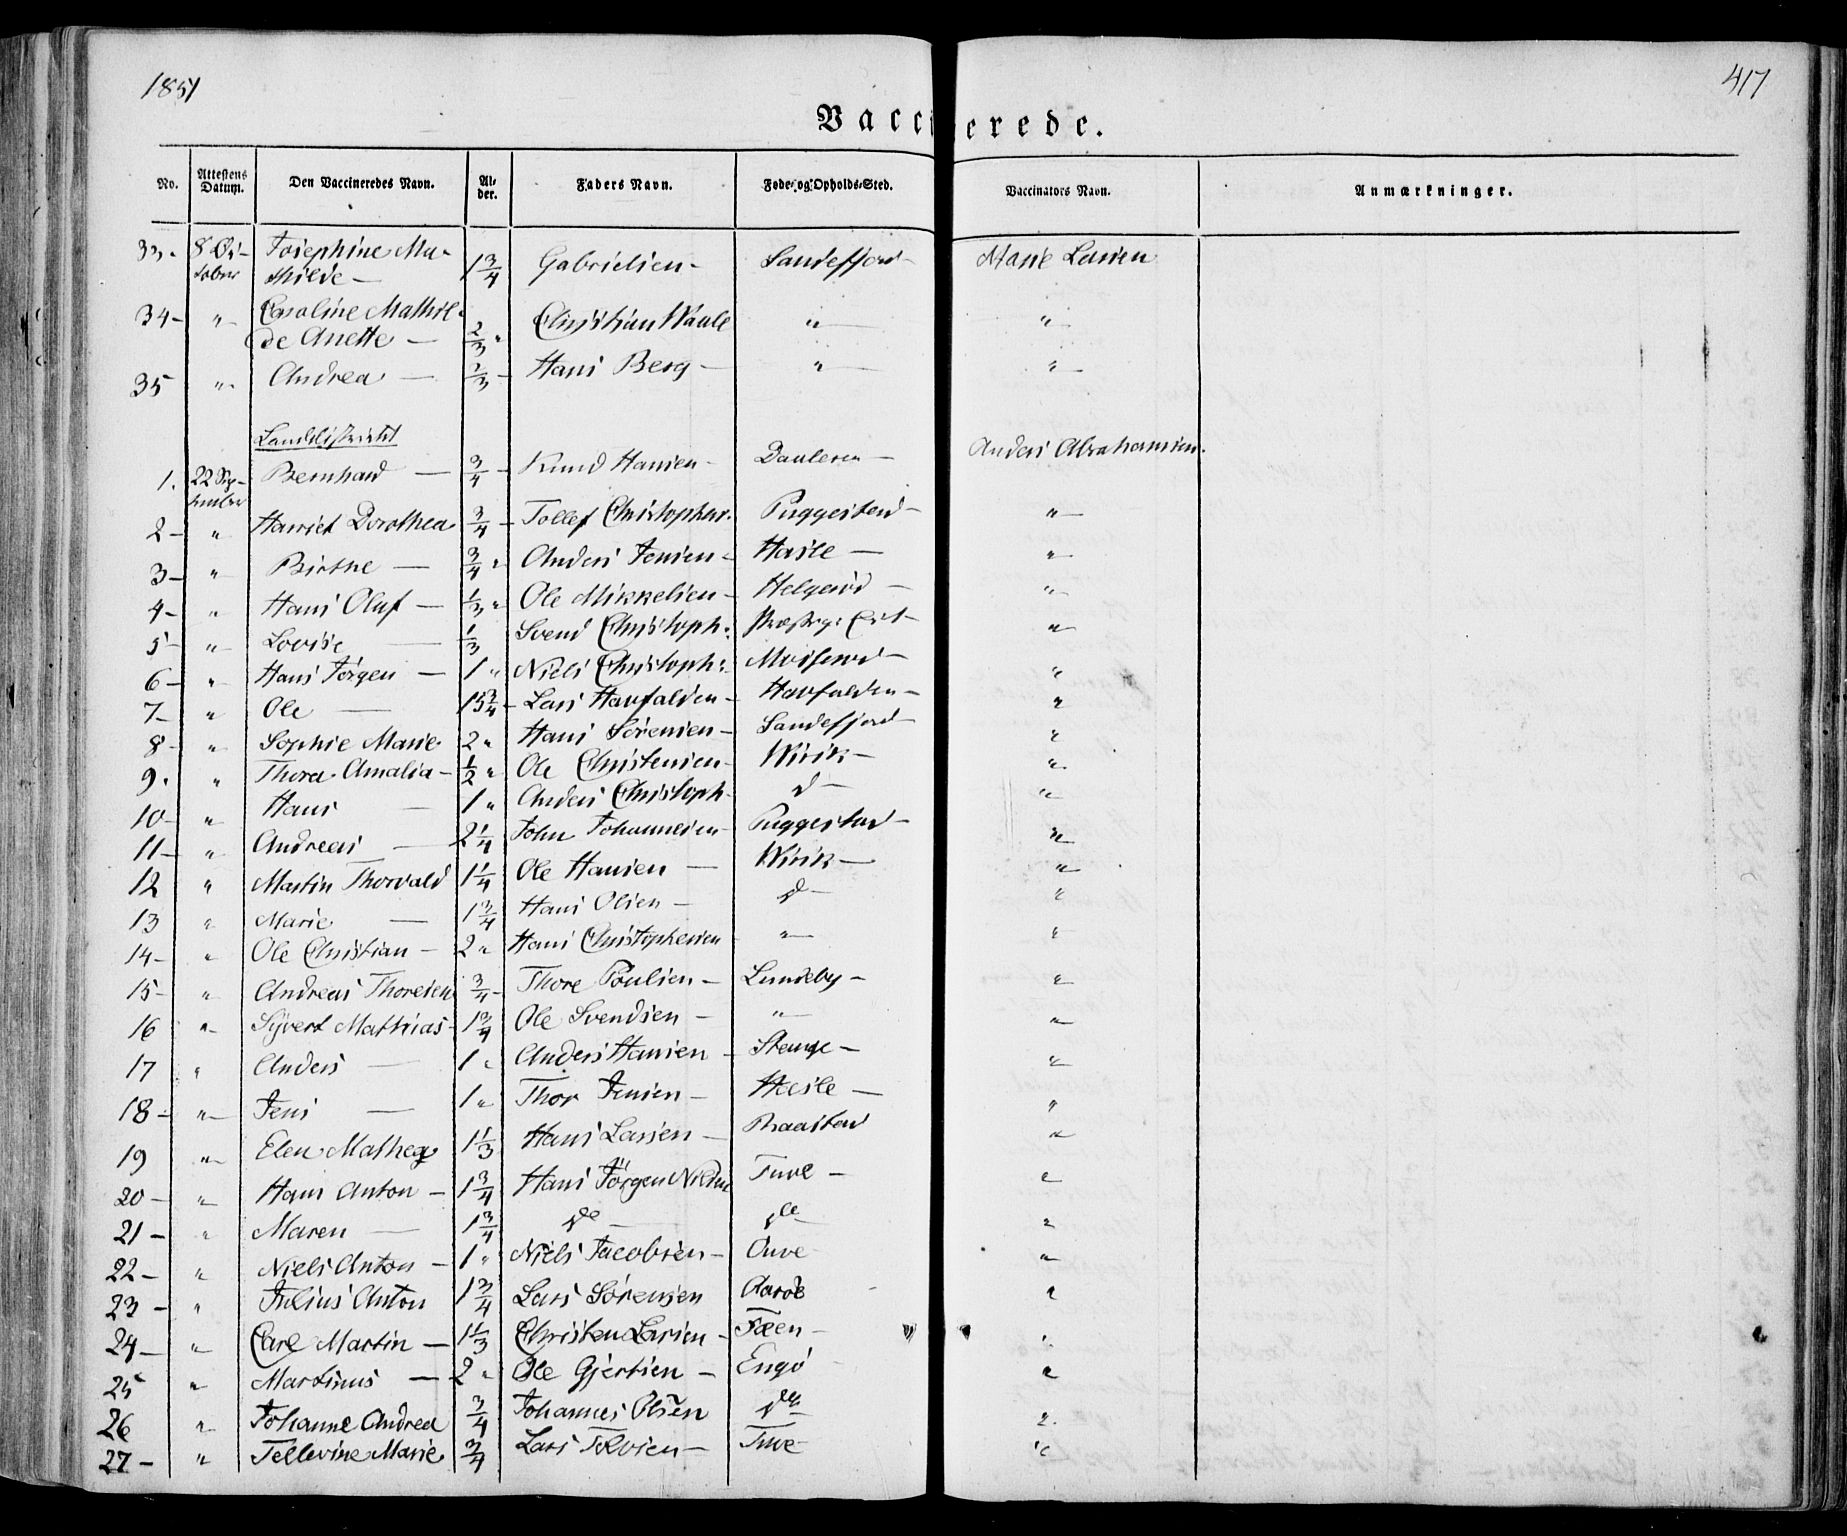 1851
417
Vaccinerede.
No. Attestens Datum. Den Vaccineredes Navn. Alder. Faders Navn. Føde- og Opholds-Sted. Vaccinators Navn. Anmærkninger.
33. 8 October Josephine Mathilde – 1 3/4 Gabrielsen – Sandefjord – Marie Larsen
34 – " Caroline Mathilde Anette – 2/3 " Christian Waale " "
35 " Andrea – 2/3 – Hans Berg – " "
Landdistrictet
1. 22 September Bernhard – 3/4 – Knud Hansen – Anders Abrahamsen.
2 – " Harriet Dorothea 3/4 – Tollef Christophers. Puggestad – "
3 – " Birthe – 3/4 " Anders Jensen – Hasle – "
4 – " Hans Oluf – 1/3 " Ole Mikkelsen – Helgerød – "
5 – " Lovise – 1/3 Svend Christoph: "
6 – " Hans Jørgen – 1 " Niels Christoph: Moserød – "
7 – " Ole – 15 3/4 – Lars Haufalden – Haufalden – "
8 – " Sophie Marie 2 " Hans Sørensen – Sandefjord – "
9. " Thora Amalia – 1/2 " Ole Christensen – Wirik – "
10 – " Hans – 1 " Anders Christoph. d – "
11 – " Andreas – 2 1/4 John Johannesen – Puggestad – "
12 " Martin Thorvald 1 1/4 Ole Hansen – Wirik – "
13 " Marie – 1 3/4 Hans Olsen – d – "
14 – " Ole Christian – 2 " Hans Christophersen " "
15 – " Andreas Thoresen 3/4 – Thore Poulsen – Lundeby – "
16 " Syvert Mathias – 1 3/4 Ole Svendsen – " "
17 " Anders – 1 " Anders Hansen – Stange – "
18 – " Jens – 1 " Thor Jensen – Hasle – "
19 " Elen Mathea 1 1/3 Hans Larsen – Raastad "
20 – " Hans Anton – 1 3/4 Hans Jørgen Nilsen Tuve – "
21 – " Maren – 1 3/4 do – do – "
22 – " Niels Anton – 1 " Niels Jacobsen – "
23 – " Julius Anton 1 3/4 Lars Sørensen Aarøe "
24 – " Carl Martin – 1 1/3 Christen Larsen – Fæen – "
25 " Martinus – 2 " Ole Gjertsen – Engø "
26 " Johanne Andrea 3/4 Johannes Olsen do "
27 – " Tellevine Marie 3/4 Lars – Tuve "